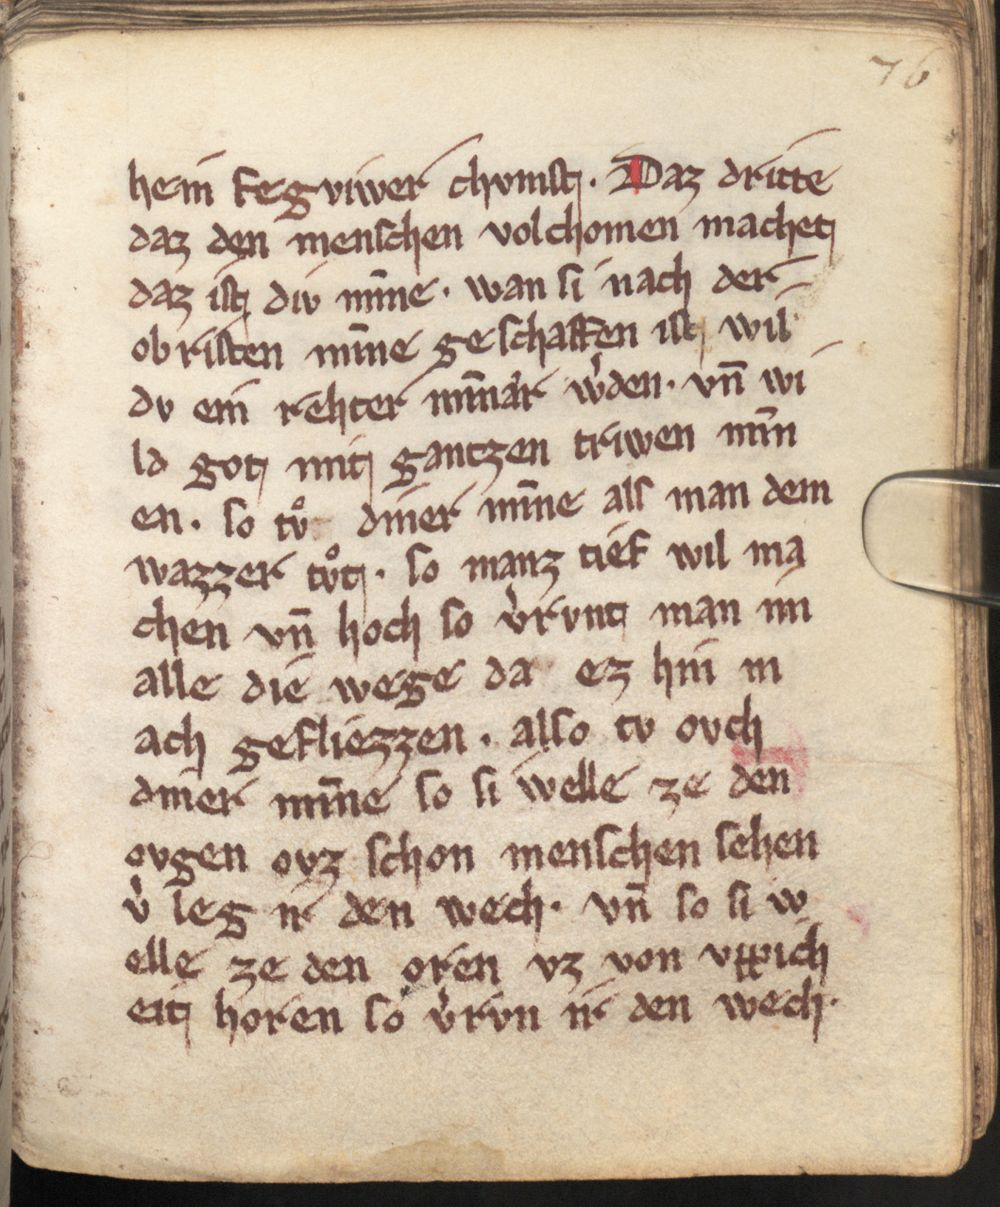 76
hein fegviwer chvmst. Daz dritte
daz den menschen volchomen machet
daz ist div miñe. wan si nach der
obristen miñe geschaffen ist wil
dv ein rehter miñar w̓den. vñ wi
ld got mit gantzen triwen miñ
en. so tvͦ diner miñe als man dem
wazzer tvͦt. so manz tief wil ma
chen vñ hoch so v̓rvnt man im
alle die wege da ez hin m
ach gefliezzen. also tv ovch
diner miñe so si welle ze den
ovgen ovz schon menschen sehen
v̓leg ir den wech. vñ so si w
elle ze den oren vz von vppich
eit horen so v̓rvn ir den wech.